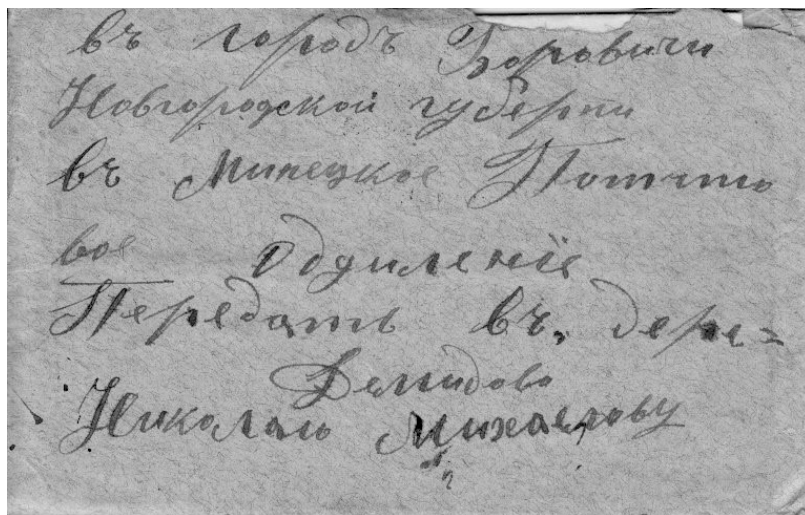 въ городъ Боровичи
Новгородской губерни
въ Минецкое Потчто
вое Оддиление
Передать въ дере=
Демидово
Николаю Михаелову